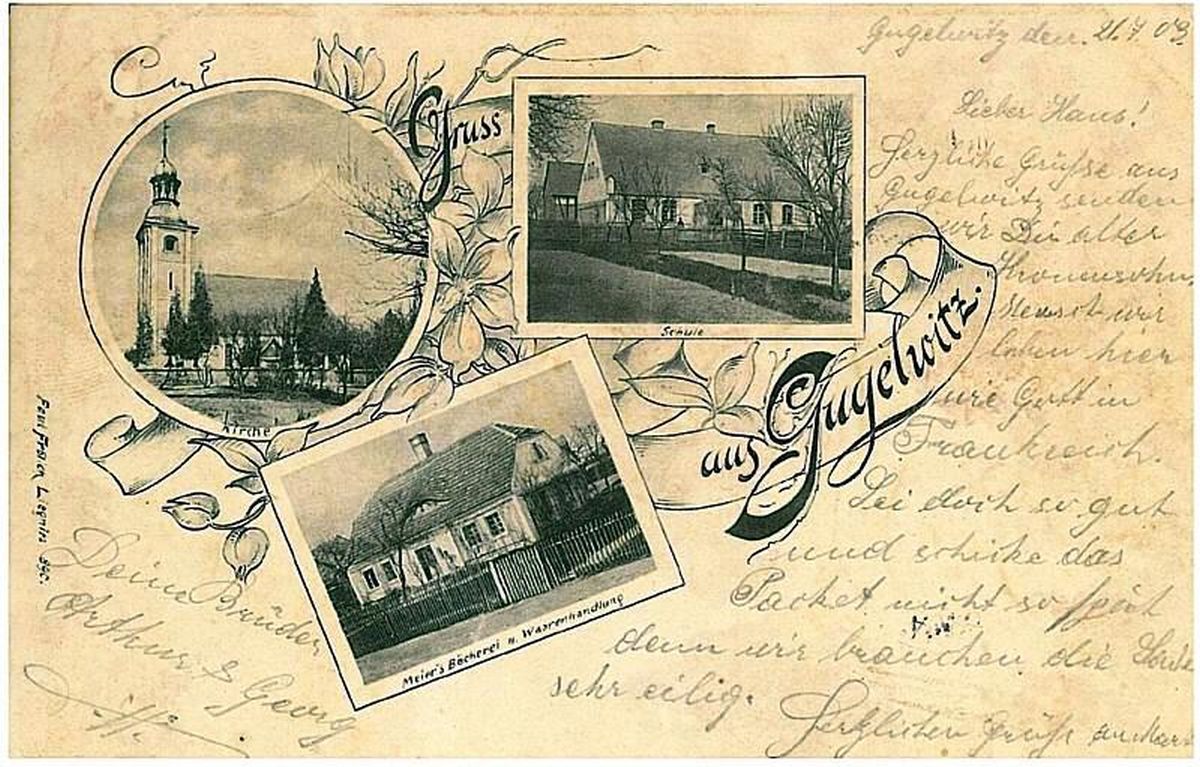 Gruss
aus Gugelwitz.
Kirche
Schule
Meier's Bäckerei u. Waarenhandlung
Gugelwitz den 21.7.03
Lieber Hans!
Herzliche Grüße aus
Gugelwitz senden
wir Dir alter
Mensch wir
leben hier
wie Gott in
Frankreich.
Sei doch so gut
und schicke das
Packet nicht so spät
denn wir brauchen die
sehr eilig.
Herzlichen Gruß an
Deine Brüder
Arthur & Georg